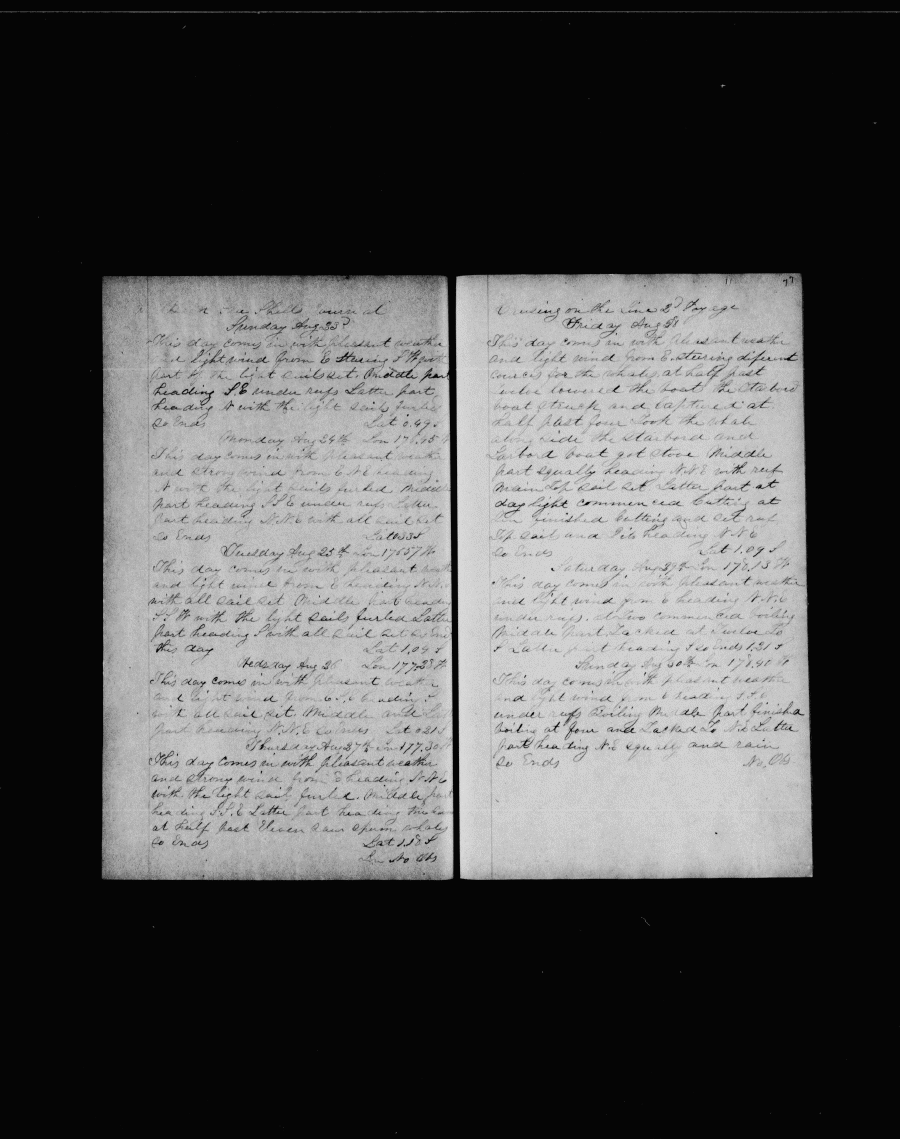 Journal
Sunday Aug 23d
This day comes in with pleasant weather
and light wind from E Stering S W
part of the light sails set. Middle part
heading S.E under reefs Latter part
heading N with the light sails furled
So Ends Lat 0.49 S
Monday Aug 24th Lon 176.45 W
This day comes in with pleasant weather
and strong wind from E N E heading
N with the light sails furled Middle
part heading S S E under reefs Latter
part heading N.N.E with all sail set
So Ends Lat S
Tuesday Aug 25th Lon 176 57 W
This day comes in with pleasant weather
and light wind from E heading N.N.E
with all sail set Middle part heading
S.S.W with the light sails furled Latter
part heading S with all sail set So Ends
this day Lat 1.04 S
Wedsday Aug 26 Lon 177.28 W
This day comes in with pleasant weather
and light wind from E.S.E heading
with all sail set. Middle and Latter
part heading N.N.E So Ends Lat 0 21 S
Thursday Aug 27th Lon 177.30 W
This day comes in with pleasant weather
and strong wind from E heading N.N.E
with the light sails furled. Middle part
heading S.S.E Latter part heading the same
at half past Eleven saw sperm whales
So Ends Lat 1.18 S
Lon No Obs
77
Cruising on the Line 2d Voyage
Friday Aug 28
This day comes in with pleasant weather
and light wind from E. steering diferent
cources for the whales at half past
lowered the boats the Starbord
boat struck and captured at
half past four took the whale
along side the starbord and
Larbord boat got stove Middle
part squally heading N.N.E with reef
main top sail set Latter part at
day light commenced Cutting at
Ten finished Cutting and set reef
Top sail and Gib heading N-N E
So Ends Lat 1.09 S
Saturday Aug 29th Lon 178.13 W
This day comes in with pleasant weather
and light wind from E heading N.N.E
under reefs. at two commenced boiling
Middle part Tacked at Twelve to
S Latter part heading S So Ends 1.21 S
Sunday Aug 30th Lon 178.40 W
This day comes in with pleasant weather
and light wind from E heading S S E
under reefs Boiling Middle part finished
boiling at four and Tacked to N.E Latter
part heading N.E squally and rain
So Ends No, Obs